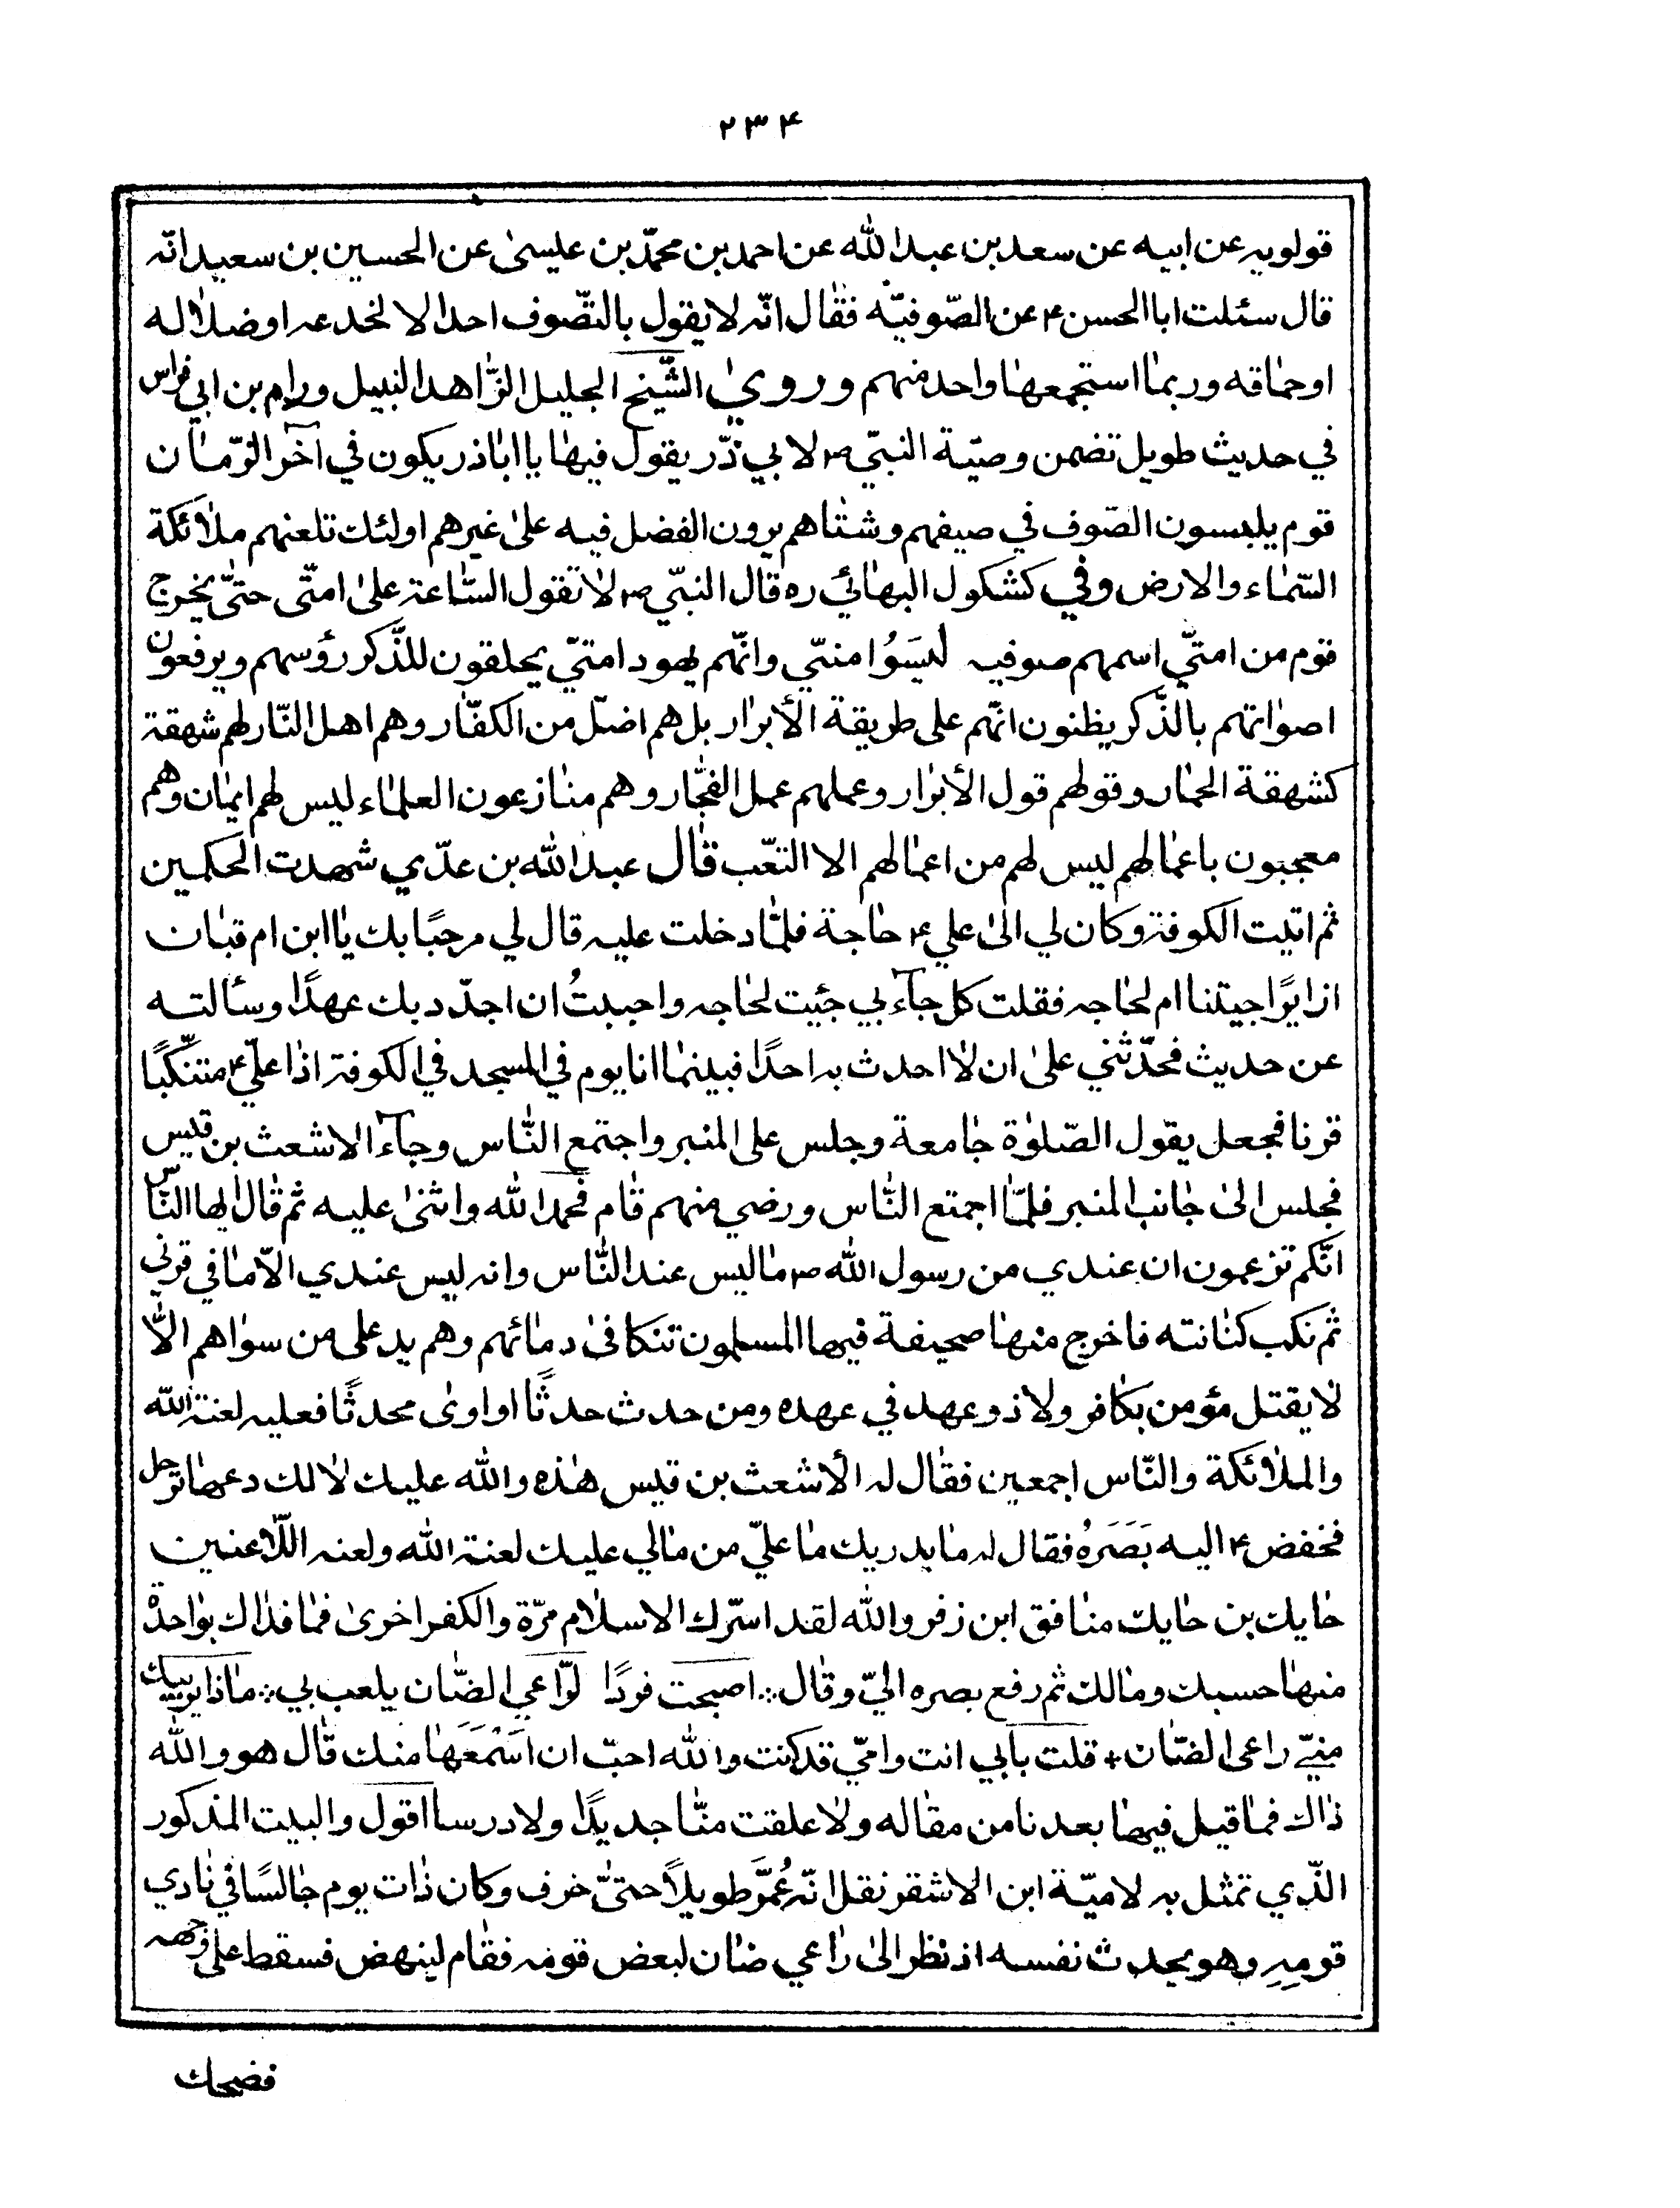 ٢٣۴
قولويه عن ابيه عن سعد بن عبد الله عن احمد بن محمّد بن عليسىٰ عن الحسين بن سعيد انّه
قال سئلت ابا الحسن ۴ عن الصّوفيّه فقال انّه لا يقول بالتّصوف احد الا لخدعه او ضلاله
او حماقه وربمٰا استجمعهٰا واحد منهم وروىٰ الشّيخ الجليل الزّاهد النبيل ورام بن ابي فراس
في حديث طويل تضمن وصيّة النبيّ ص لابي ذّر يقول فيهٰا يا ابٰاذر يكون في آخر الزّمٰان
قوم يلبسون الصّوف في صيفهم وشتٰاهم يرون الفضل فيه علىٰ غيرهم اولئك تلعنهم ملٰائكة
السّمٰاء والارض وفي كشكول البهٰائي ره قال النبيّ ص لٰا تقول السّٰاعة علىٰ امتّى حتىّٰ يخرج
قوم من امتّي اسمهم صوفيه ليَسَوُا منىّ وانّهم يهود امتىّ يحلقون للذَّكر رؤسهم ويرفعون
اصوٰاتهم بالذّكر يظنون انّهم على طريقة الأبرٰار بل هم اضلّ من الكفّٰار وهم اهل النّار لهم شهقة
كشهقة الحمٰار وقولهم قول الأبرٰار وعملهم عمل الفجّٰار وهم منٰازعون العلمٰاء ليس لهم ايمٰان وهم
معجبون باعمٰالهم ليس لهم من اعمٰالهم الا التعّب قٰال عبد الله بن عدّي شهدت الحكمين
ثم اتيت الكوفة وكان لي الىٰ علي ۴ حٰاجة فلمّٰا دخلت عليه قال لي مرحبًا بك يٰا ابن ام قبٰان
ازايرًا جيتنا ام لحٰاجه فقلت كل جآء بي جئيت لحٰاجه واحببتُ ان اجدّد بك عهدًا وسألته
عن حديث فحدّثني علىٰ ان لٰا احدث به احدًا فبينمٰا انا يوم في المسجد في الكوفة اذٰا علي ۴ متنكّبًا
قرنا فجعل يقول الصّلوٰة جٰامعة وجلس على المنبر واجتمع النّٰاس وجآء الاشعث بن قيس
فجلس الىٰ جٰانب المنبر فلمّٰا اجمتع النّٰاس ورضي منهم قٰام فحمد الله واثنىٰ عليه ثم قٰال ايها النّاس
انّكم تزعمون ان عندي من رسول الله ص مٰا ليس عند النّٰاس وانه ليس عندي الّا مٰا في قرني
ثم نكب كنٰانته فاخرج منهٰا صحيفة فيها المسلمون تتكافىٰ دمٰائهم وهم يد على من سوٰاهم الّٰا
لٰا يقتل مؤمن بكٰافر ولا ذو عهد في عهده ومن حدث حدثًا او اوىٰ محدثًا فعليه لعنة الله
والملٰائكة والنّٰاس اجمعين فقٰال له الأشعث بن قيس هٰذه والله عليك لٰا لك دعهٰا ترحل
فخفض ۴ اليه بَصَرَهُ فقال له مٰا يدريك مٰا عليّ من مٰالي عليك لعنة الله ولعنه اللّٰاعنين
حٰايك بن حٰايك منٰافق ابن زفر والله لقد اسّرك الاسلٰام مرّة والكفر اخرىٰ فمٰا فدٰاك بوٰاحدة
منهٰا حسبك ومٰالك ثم رفع بصره اليّ وقٰال ∴ اصبحت فردًا لوّٰاعي الضّٰان يلعب بي ∴ مٰاذا يريبك
منيّ راعى الضّٰان + قلت بابي انت وامّي قد كنت والله احبّ ان اَسْمَعَهٰا منك قٰال هو والله
ذٰاك فمٰا قيل فيهٰا بعدنا من مقٰاله ولٰا علقت منّٰا جديدًا ولا درسا اقول والبيت المذكور
الذّي تمثل به لاميّة ابن الاشقر نقل انّه عُمّرَ طويلاً حتىّٰ خرف وكان ذٰات يوم جٰالسًا في نٰادي
قومِهِ وهو يحدث نفسه اذ نظر الىٰ رٰاعي ضٰان لبعض قومه فقٰام لينهض فسقط على وجهه
فضحك